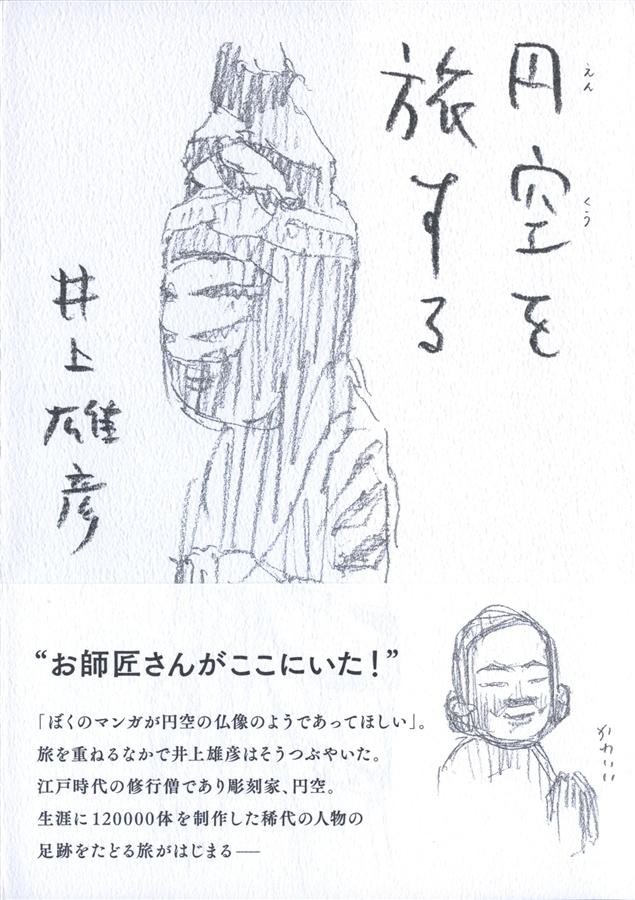 円空を
えん
くう
旅する
井上雄彦
“お師匠さんがここにいた！”
「ぼくのマンガが円空の仏像のようであってほしい」。
旅を重ねるなかで井上雄彦はそうつぶやいた。
江戸時代の修行僧であり彫刻家、円空。
生涯に120000体を制作した稀代の人物の
足跡をたどる旅がはじまる──
かわいい